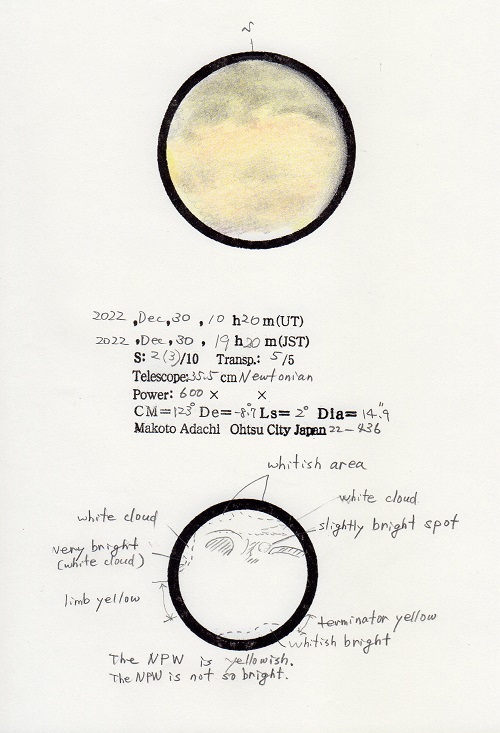 N
2022 , Dec, 30 , 10 h 20 m (UT)
2022 , Dec, 30 , 19 h 20 m (JST)
S: 2(3)/10 Transp.: 5/5
Telescope: 35.5 cm Newtonian
Power: 600 × ×
CM=123° De=-8.°7 Ls= 2° Dia= 14."9
Makoto Adachi Ohtsu City Japan 22-436
whitish area
white cloud
white cloud
slightly bright spot
very bright
(white cloud)
limb yellow
terminator yellow
whitish bright
The NPW is yellowish.
The NPW is not so bright.